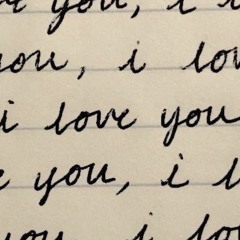 ve you, i l
you, i lov
i love you
e you, i l
you, i lov